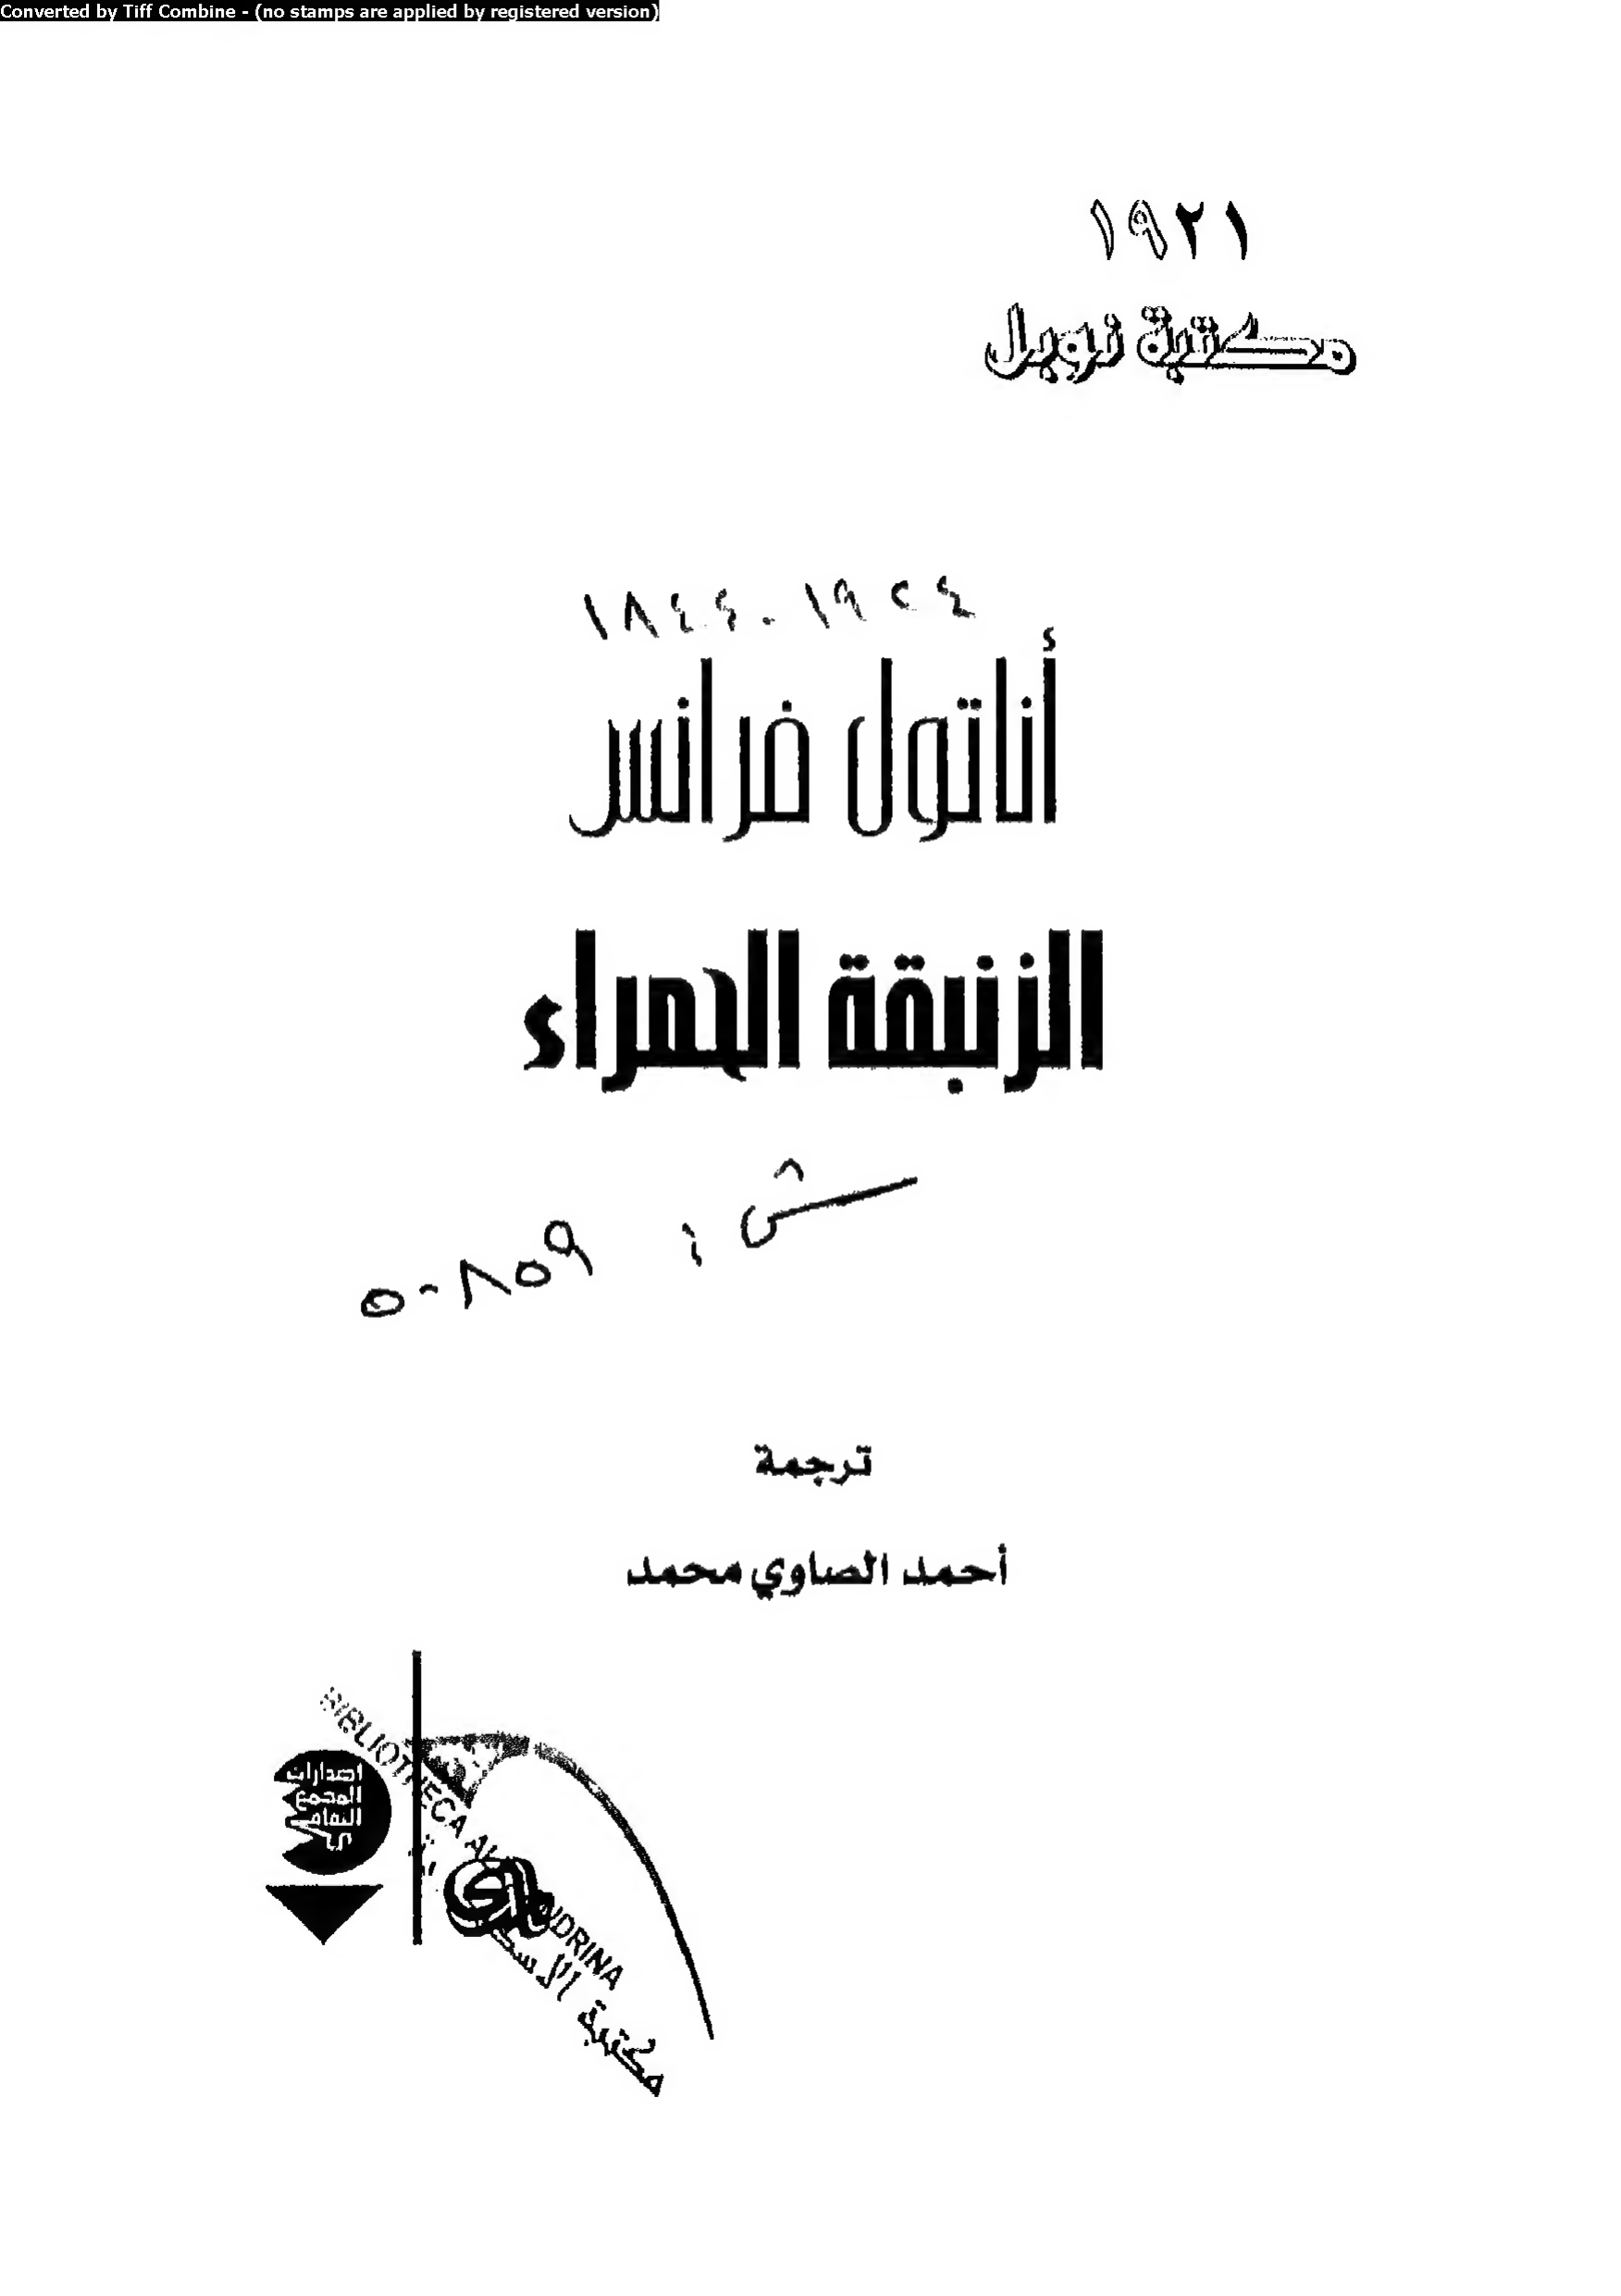 Converted by Tiff Combine - (no stamps are applied by registered version)
١٩٢١
مكتبة نوبل
١٨٤٤-١٩٢٤
أناتول فرانس
الزنبقة الحمراء
ش : ٥٠٨٥٩
ترجمة
أحمد الصاوي محمد
إصدارات
المجمع
الثقافي
BIBLIOTHECA ALEXANDRINA
مكتبة